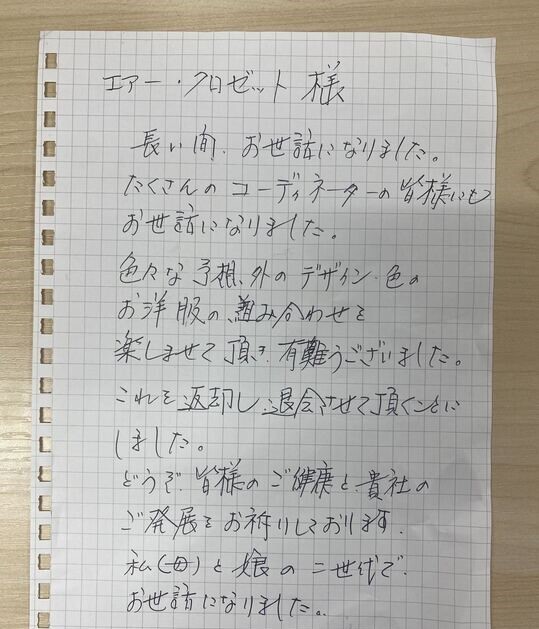 エアー・クロゼット 様
長い間、お世話になりました。
たくさんのコーディネーターの皆様にも
お世話になりました。
色々な予想外のデザイン・色の
お洋服の組み合わせを
楽しませて頂き、有難うございました。
これを返却し、退会させて頂くことに
しました。
どうぞ、皆様のご健康と、貴社の
ご発展をお祈りしております。
私(母)と娘の二世代で、
お世話になりました。